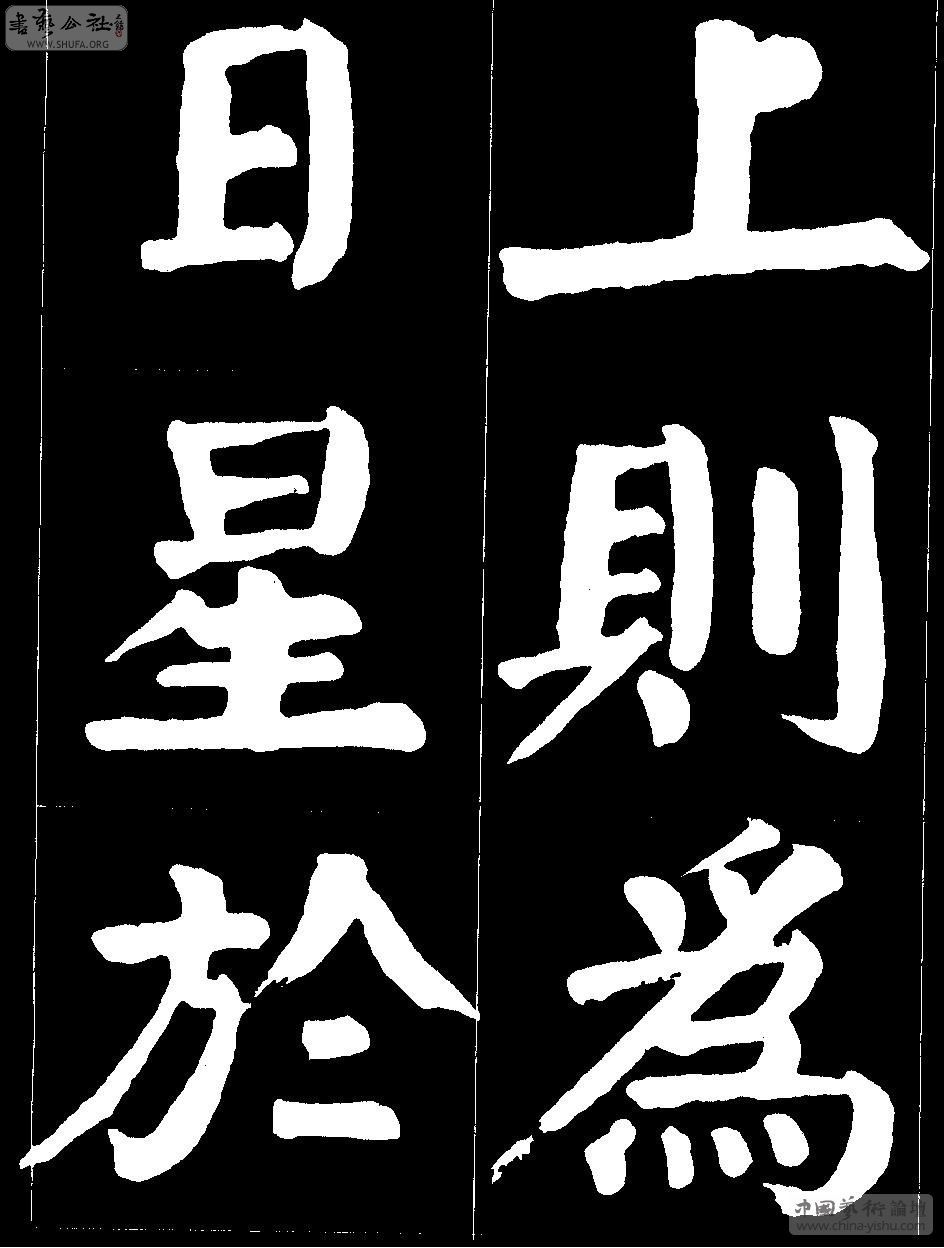 上則為
日星於
書藝公社
WWW.SHUFA.ORG
中國藝術論壇
www.china-yishu.com